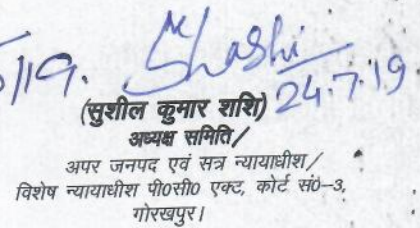 /19. Shashi
24.7.19
(सुशील कुमार शशि)
अध्यक्ष समिति/
अपर जनपद एवं सत्र न्यायाधीश/
विशेष न्यायाधीश पी0सी0 एक्ट, कोर्ट सं0-3,
गोरखपुर।